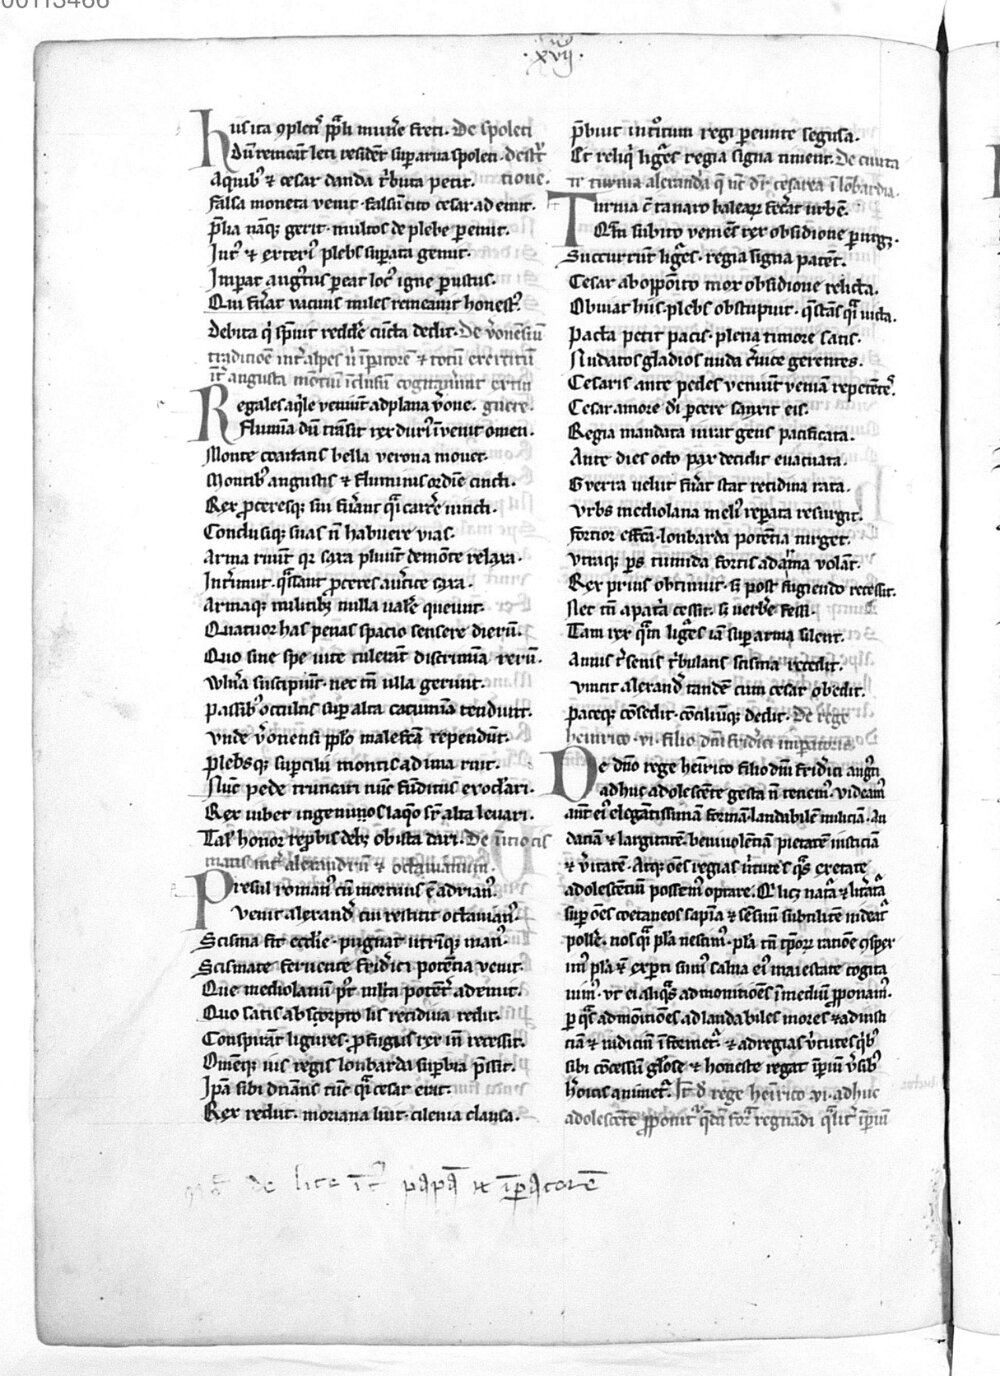 00113466
.xvij.
Hus ita 9pleti' ppłi mun'e freti. De spoleti
Dū remeāt leti resider sup arua spoleti. destr'
A quib' & cesar danda t'buta petit. tione.
Falsa moneta uenit. falsū cito cesar ademit.
Plia nāq; gerit. multos de plebe peremit.
Int' & exteri' plebs supata gemit.
Impat augusti' peat loc' igne pustus.
Qui fu'at uicinus miles remeauit honest'.
Debita q' spuit redd'e cūcta dedit. De v'onēsiū
traditioē int' alpes ī īpatorē & totū exercitū
Regales aq'le ueniūt ad plana v'one. guere.
Flumīa dū trāsit rex duri' īuenit omen.
Monte coartatis bella uerona mouet.
Montib' angustis & fluminis ordīe cincti.
Rex pceresq; sui fu'ant q'i carc'e uincti.
Conclusiq; suas ñ habuere uias.
Arma ruūt qr saxa pluūt de mōte relaxa.
Int'imūt. q'ssant pceres a u'tice saxa.
Armaq; militib; nulla ual'e queunt.
Quatuor has penas spacio sensere dierū.
Quo sine spe uite tulerāt discrimīa rerū.
Wln'a suscipiūt. nec tñ ulla gerunt.
Passib' occultis sup alta cacumīa tendunt.
Vnde v'onensi pplo malefca rependūt.
Plebsq; supcilii montis ad ima ruit.
Nūc pede truncari nūc fūditus exoclari.
Rex iubet ingenuuos laq̄o sr alta leuari.
Tal' honor repbis deb; obista dari. De
matis int' alexandrū & octauianum.
Presul roman' cū mortuus ē adrian'.
Venit alexand' cui restitit octauian'.
Scisma fit eccl'ie. pugnat utrinq; man'.
Scismate feruente frid'ici potētia uenit.
Que mediolanū pt' mlta potēt' ademit.
Quo satis absorpto lis recidiua redit.
Conspirāt ligures. pfugus rex in recessit.
Omēq; uis regis lombarda supbia pssit.
Ipā sibi dnāns tūc q'i cesar erat.
Rex rediit. moriana luit. cilenia clausa.
pbuit introitum regi peunte segusa.
Et reliq' lig'es regia signa timent. De ciuita
te turnia alexandra q' ut dr' cesarea ī lōbardia.
Turnia ē tanaro
Qm subito ueniēs rex obsidione
Succurrūt lig'es. regia signa patēt.
Cesar ab opposito mox obsidione relicta.
Obuiat his. plebs obstupuit. q'ssās q'i uicta.
Pacta petit pacis. plena timore satis.
Nudatos gladios nuda c'uice gerentes.
Cesaris ante pedes ueniūt ueniā repetēte'.
Cesar amore di pcere sanxit eis.
Regia mandata iurat gens pacificata.
Ante dies octo pax decidit euacuata.
Gverra uelut fu'at stat recidiua rata.
Vrbs mediolana meli' repata resurgit.
Fortior effcā. lombarda potētia turget.
Vtraq; ps tumida fortis ad arma uolāt.
Rex prius obtinuit. si post fugiendo recessit.
Nec tñ apata cessit. si uerb'e fessi.
Tam rex q̄m lig'es iā sup arma silent.
Annis t'senis t'bulatis scisma recedit.
Vincit alexand' tandē cum cesar obedit.
Paceq; cōsedit. cōciliūq; dedit. De rege
heinrico .vi. filio dñi frid'ici imperatoris
De dño rege heīrico filio dñi frid'ici aug'ti
adhuc adolescēte gesta ñ tenem'. videam'
aut ei' elegātissimā formā. laudabilē miliciā. Au
daciā & largitatē. beniuolētiā pietatē iusticiā
& v'itatē. Atq; oēs regias u'tutes q's ex etate
adolescētiū possem' optare. & licz nat'a & litat'a
sup oēs coetaneos sapīa & sēsuū subtilitē uideat'
posse. nos q'i pla nescim'. pla tñ tpor' ratiōe 9sper
im' pla &̄ expti sum' salua ei' maiestate cogita
uim'. vt ei aliq's admonitiōes ī mediū pponam'.
p q's admōitiōes ad laudabiles mores & ad iusti
ciā & iudiciū īformet'. & ad regias v'tutes q'b'
sibi cōcessū gl'ose & honeste regat īpiū v'sib'
h'oicis animet'. It' d' rege heinrico .vi. adhuc
adolescēte pponit' q'dā for' regnādi q'lit' īpiū
de lite īt' papā et īpatorē